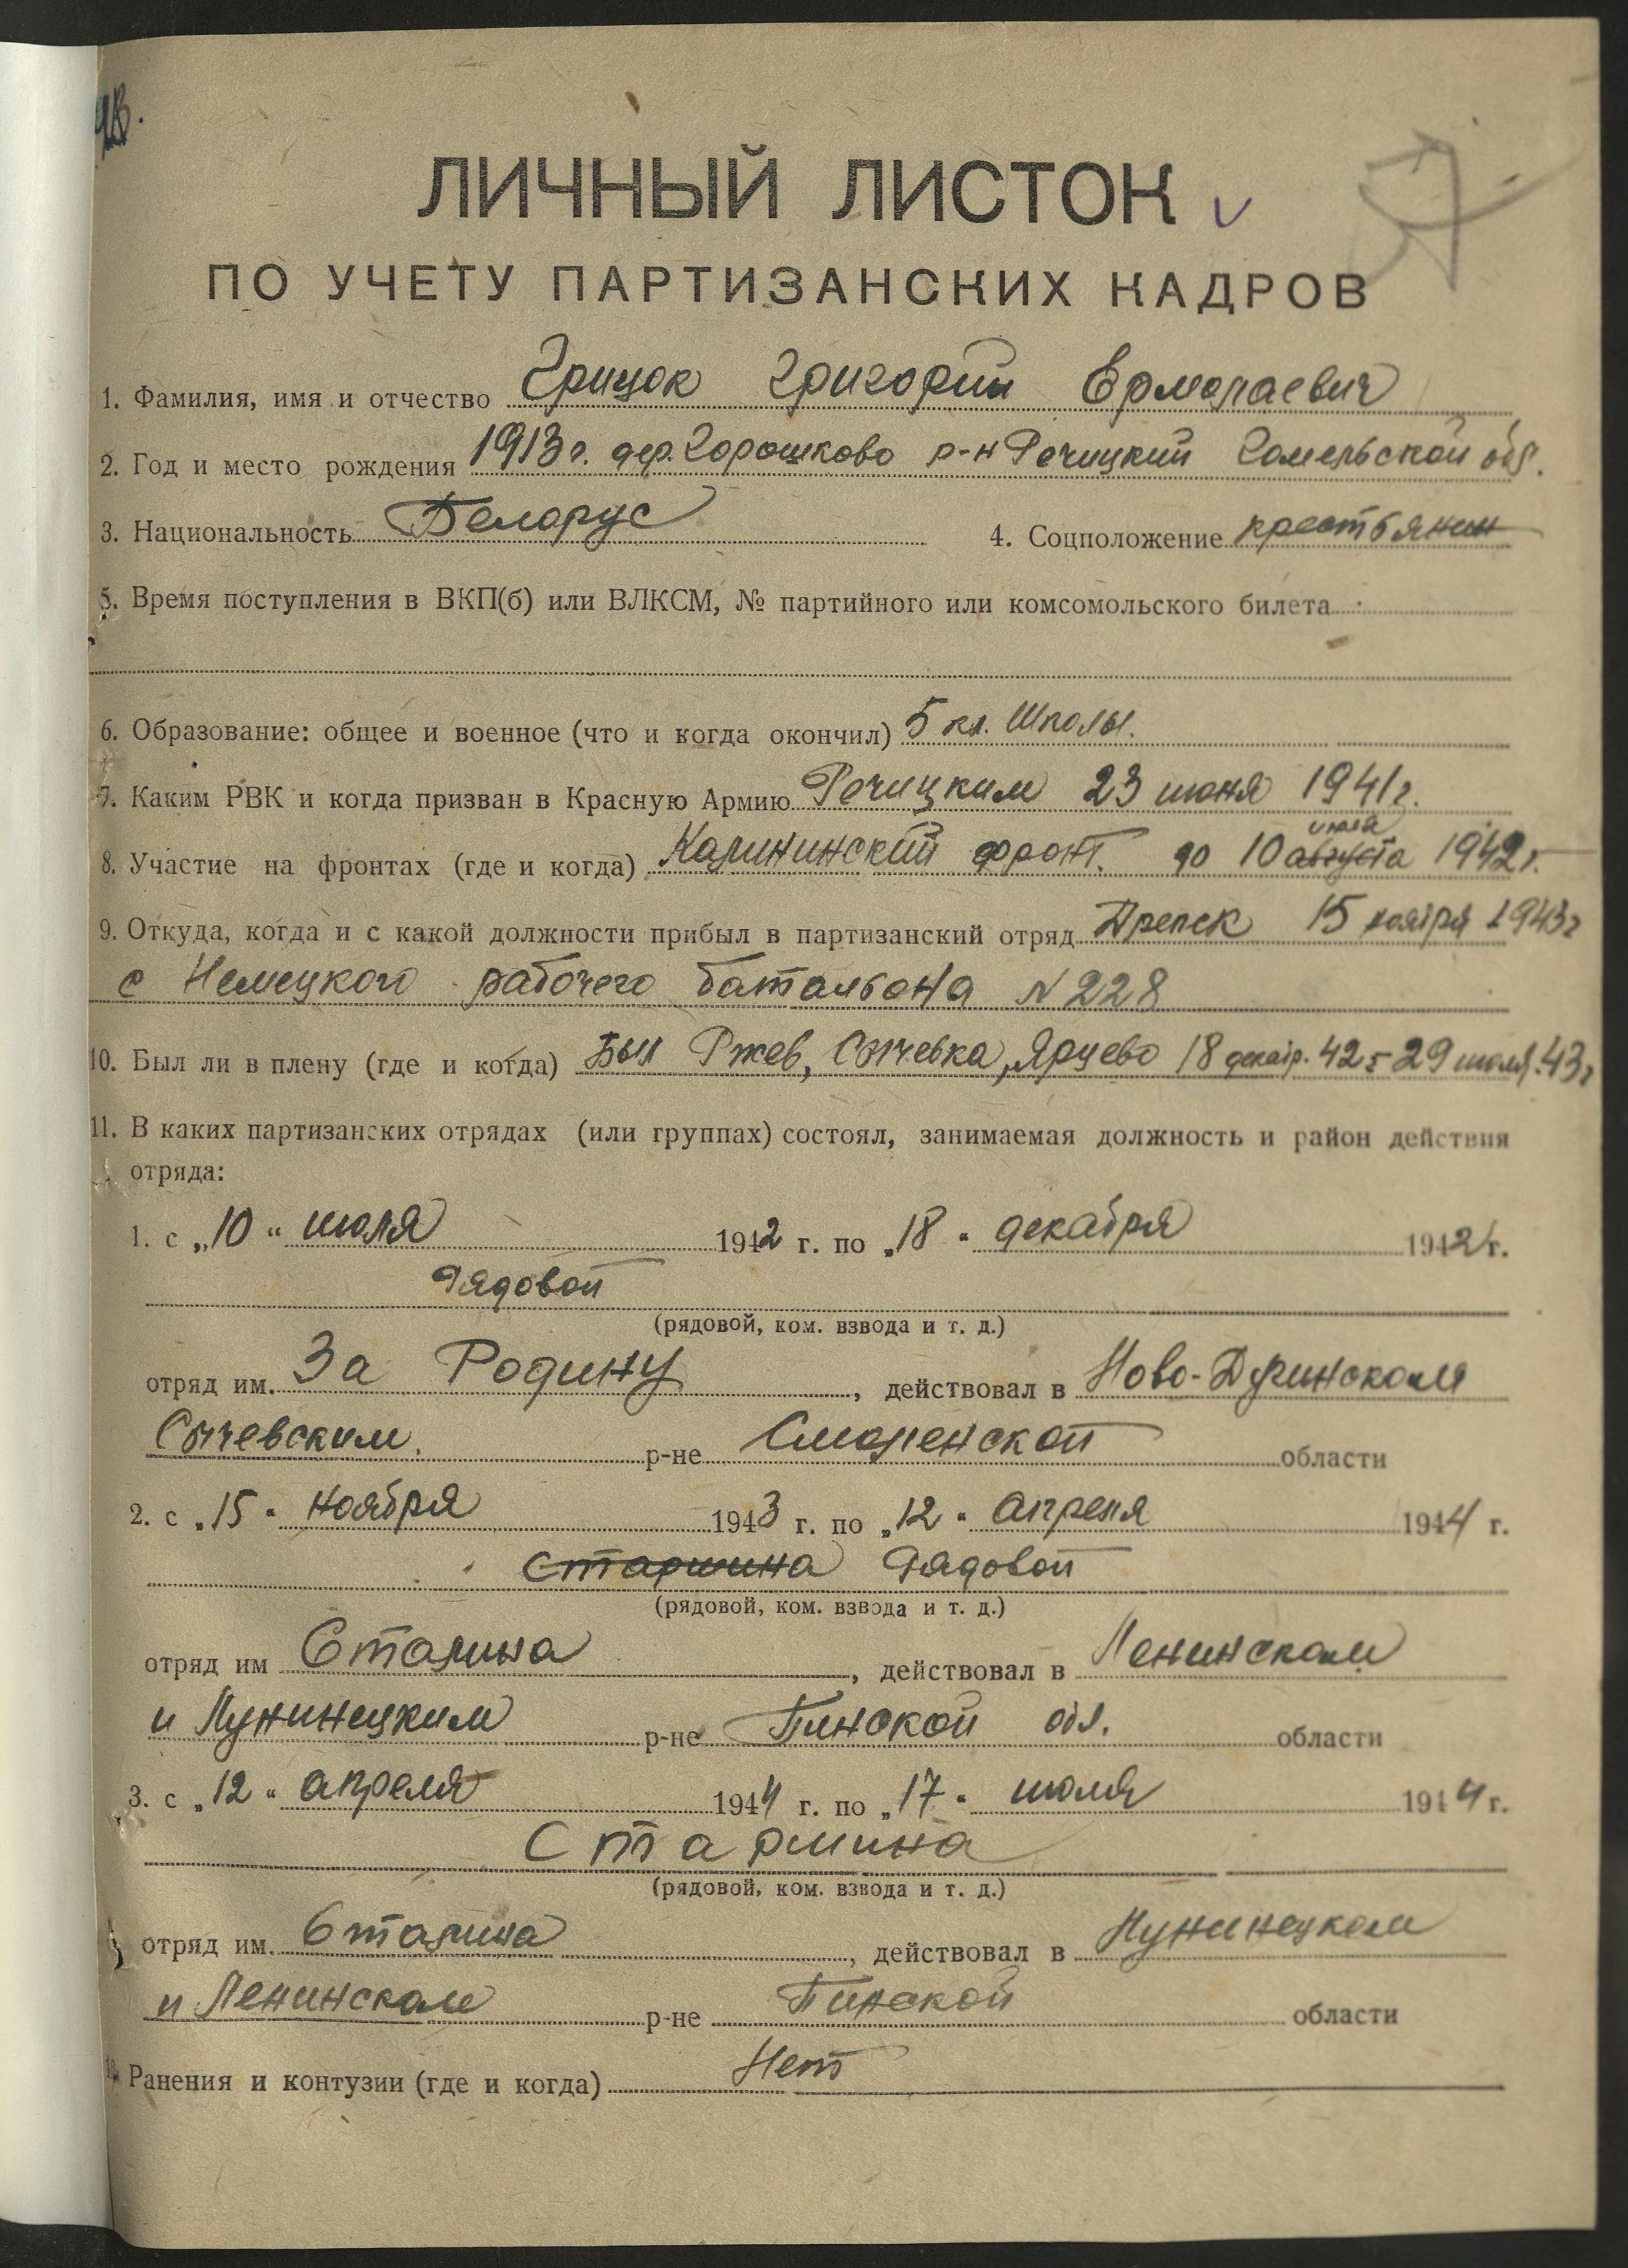 ЛИЧНЫЙ ЛИСТОК
ПО УЧЕТУ ПАРТИЗАНСКИХ КАДРОВ
1. Фамилия, имя и отчество Грицок Григорий Ермолаевич
2. Год и место рождения 1913г. дер. Горошково р-н Речицкий Гомельской обл.
3. Национальность Белорус 4. Соцположение крестьянин
5. Время поступления в ВКП(б) или ВЛКСМ, № партийного или комсомольского билета
6. Образование: общее и военное (что и когда окончил) 5 кл. школы.
7. Каким РВК и когда призван в Красную Армию Речицким 23 июня 1941г.
июля
8. Участие на фронтах (где и когда) Калининский фронт. до 10 августа 1942г.
9. Откуда, когда и с какой должности прибыл в партизанский отряд 15 ноября 1943г
с Немецкого рабочего батальона N 228
10. Был ли в плену (где и когда) Был Ржев, Сычевка, Ярцево 18 декабр. 42г - 29 июля 43г
11. В каких партизанских отрядах (или группах) состоял, занимаемая должность и район действия
отряда:
1. с „10“ июля 1942 г. по „18“ декабря 1942 г.
Рядовой
(рядовой, ком. взвода и т. д.)
отряд им. За Родину, действовал в Ново-Дугинском
Сычевским. р-не Смоленской области
2. с „15“ ноября 1943 г. по „12“ апреля 1944 г.
Старшина Рядовой
(рядовой, ком. взвода и т. д.)
отряд им Сталина, действовал в Ленинском
и Лунинецким р-не Пинской обл. области
3. с „12“ апреля 1944 г. по „17“ июля 1944 г.
Старшина
(рядовой, ком. взвода и т. д.)
отряд им. Сталина, действовал в Лунинецком
и Ленинском р-не Пинской области
Ранения и контузии (где и когда) Нет